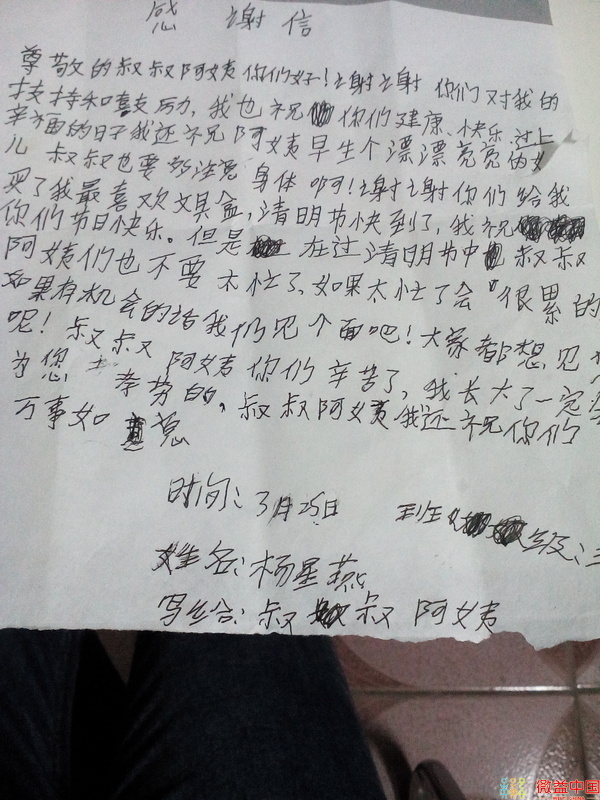 感谢信
尊敬的叔叔阿姨你们好!谢谢你们对我的
扶持和鼓励,我也祝你们健康、快乐过上
幸福的日子我还祝阿姨早生个漂漂亮亮的女
儿叔叔也要多注意身体啊!谢谢你们给我
买了我最喜欢文具盒,清明节快到了,我祝
你们节日快乐。但是在过清明节中叔叔
阿姨们也不要太忙了,如果太忙了会很累的
呢!如果有机会的话我们见个面吧!大家都想见
叔叔阿姨你们辛苦了,我长大了一定会
为您 孝劳的,叔叔阿姨我还祝你们
万事如意
时间:3月25日 班级:
姓名:杨星燕
写给:叔叔阿姨
微益中国